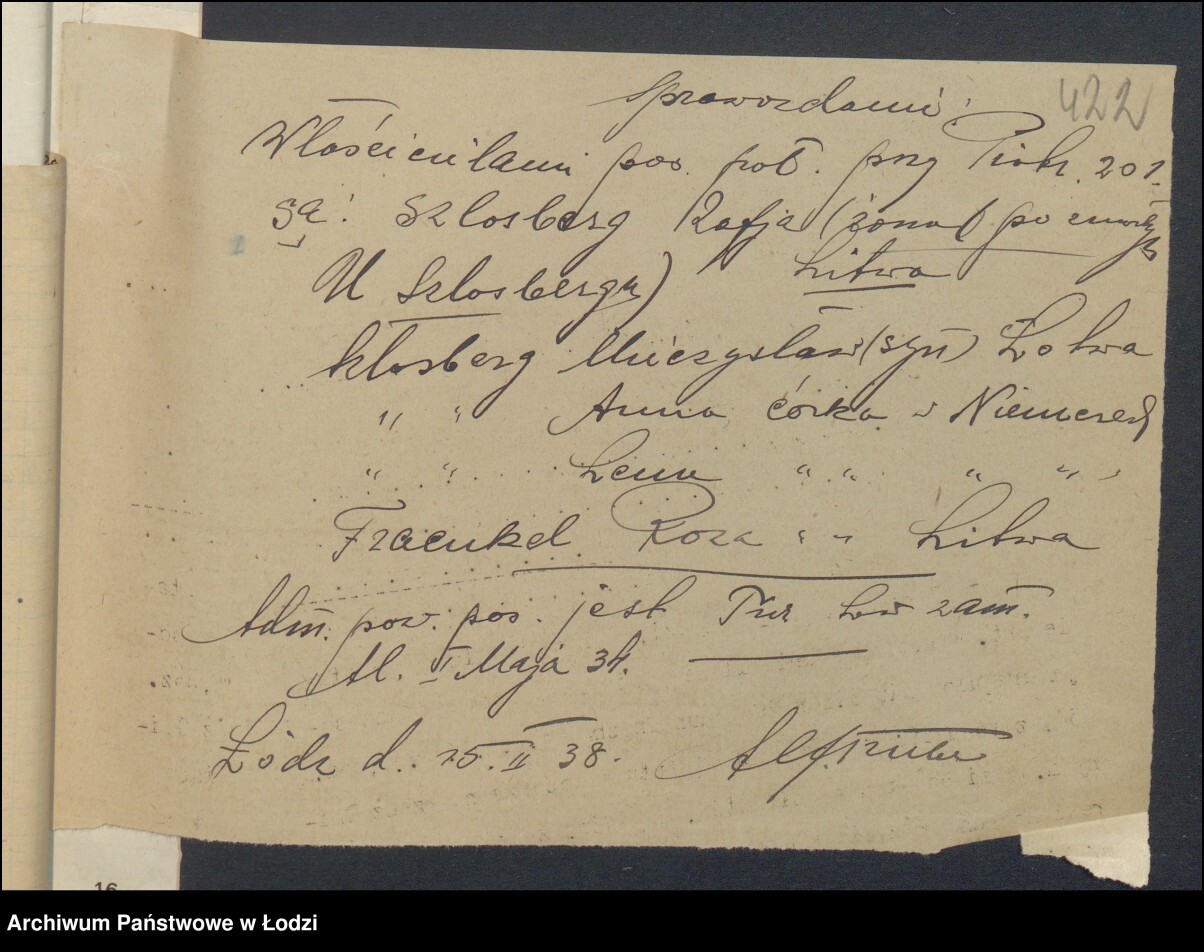 422
Sprawozdanie:
Właścicielami pos. poł. przy Piotr. 201.
są: Szlosberg Zofja (żona po zmarłym
U Szlosbergu) Litwa
Mieczysław (syn) Łotwa
" " Anna córka w Niemczech
" " Lena " " " "
Fraenkel Roza " " Litwa
Adm. pow. pos. jest zam.
Al. I Maja 34.
Łódź d. 15.II 38.
16
Archiwum Państwowe w Łodzi